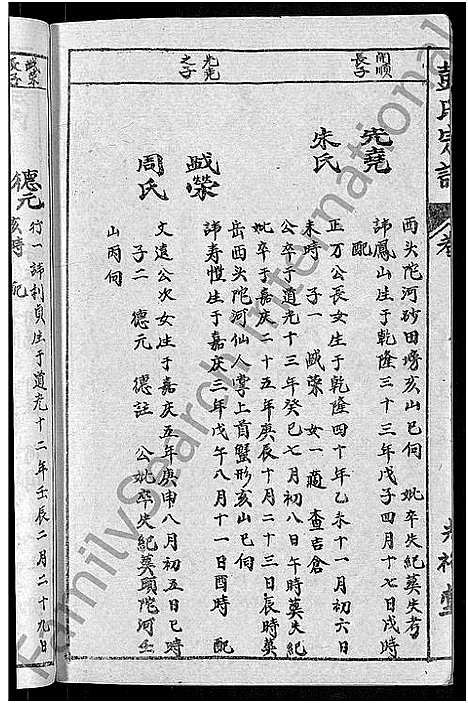 彭氏宗譜
卷
光裕堂
開順
長子
光堯
之子
西头陀河砂田塝亥山巳向 妣卒失纪葬失考
光堯 諱鳳山生于乾隆三十三年戊子四月十七日戌時
配
朱氏 正万公長女生于乾隆四十年乙未十一月初六日
未時 子一 盛榮 女一 適查吉倉
公卒于道光十三年癸巳七月初八日午時葬失紀
妣卒于嘉庆二十五年庚辰十月二十三日辰時葬
岳西头陀河仙人掌上首蟹形亥山巳向
盛榮 諱寿惺生于嘉庆三年戊午八月十一日酉時 配
周氏 文遠公次女生于嘉庆五年庚申八月初五日巳時
子二 德元 德註 公妣卒失紀葬頭陀河壬
山丙向
盛榮
長子
德元 行一諱利貞生于道光十二年壬辰二月二十九日
亥時 配
FamilySearch International